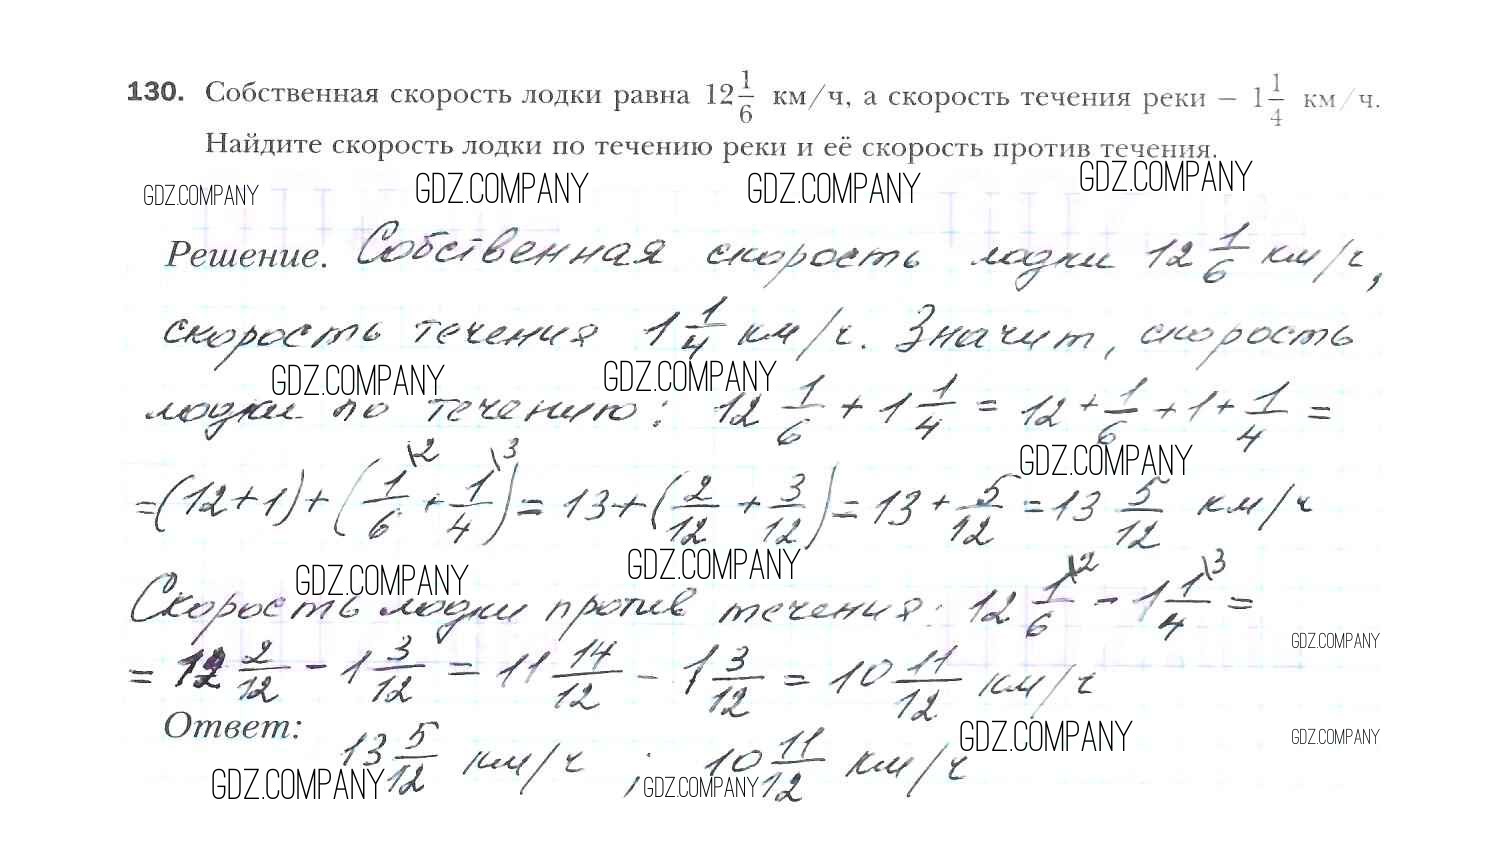 130. Собственная скорость лодки равна 12 1/6 км/ч, а скорость течения реки – 1 1/4 км/ч.
Найдите скорость лодки по течению реки и её скорость против течения.
GDZ.COMPANY GDZ.COMPANY GDZ.COMPANY GDZ.COMPANY
Решение. Собственная скорость лодки 12 1/6 км/ч,
скорость течения 1 1/4 км/ч. Значит, скорость
GDZ.COMPANY GDZ.COMPANY
лодки по течению: 12 1/6 + 1 1/4 = 12 + 1/6 + 1 + 1/4 =
GDZ.COMPANY
= (12 + 1) + (1/6 \2 + 1/4 \3) = 13 + (2/12 + 3/12) = 13 + 5/12 = 13 5/12 км/ч
GDZ.COMPANY GDZ.COMPANY
Скорость лодки против течения: 12 1/6 \2 – 1 1/4 \3 =
GDZ.COMPANY
= 12 2/12 – 1 3/12 = 11 14/12 – 1 3/12 = 10 11/12 км/ч
Ответ: 13 5/12 км/ч ; 10 11/12 км/ч
GDZ.COMPANY GDZ.COMPANY
GDZ.COMPANY GDZ.COMPANY